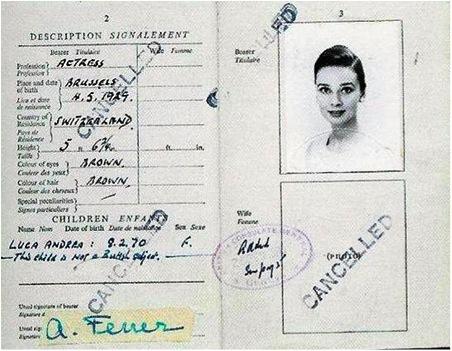 2
DESCRIPTION SIGNALEMENT
Bearer Titulaire Wife Femme
Profession Profession ACTRESS
Place and date of birth BRUSSELS
Lieu et date de naissance 4.5.1929.
Country of Residence SWITZERLAND
Pays de Résidence
Height Taille 5 ft. in. ft. in.
Colour of eyes Couleur des yeux BROWN.
Colour of hair Couleur des cheveux BROWN.
Special peculiarities
Signes particuliers
CANCELLED
CHILDREN ENFANTS
Name Nom Date of birth Date de naissance Sex Sexe
LUCA ANDREA : 8.2.70 F.
This child is not a British subject.
CANCELLED
Usual signature of bearer
Signature
Usual
Signature
A. Ferrer
CANCELLED
3
Bearer
Titulaire
Wife
Femme
(PHOTO)
CANCELLED
CONSULATE GENERAL